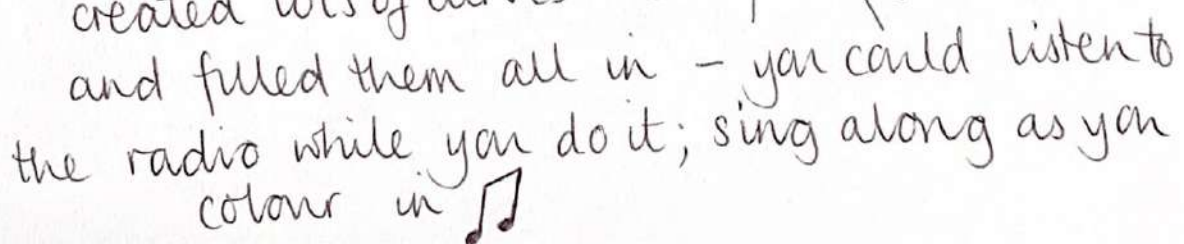 created lots of
and filled them all in – you could listen to
the radio while you do it; sing along as you
colour in ♫